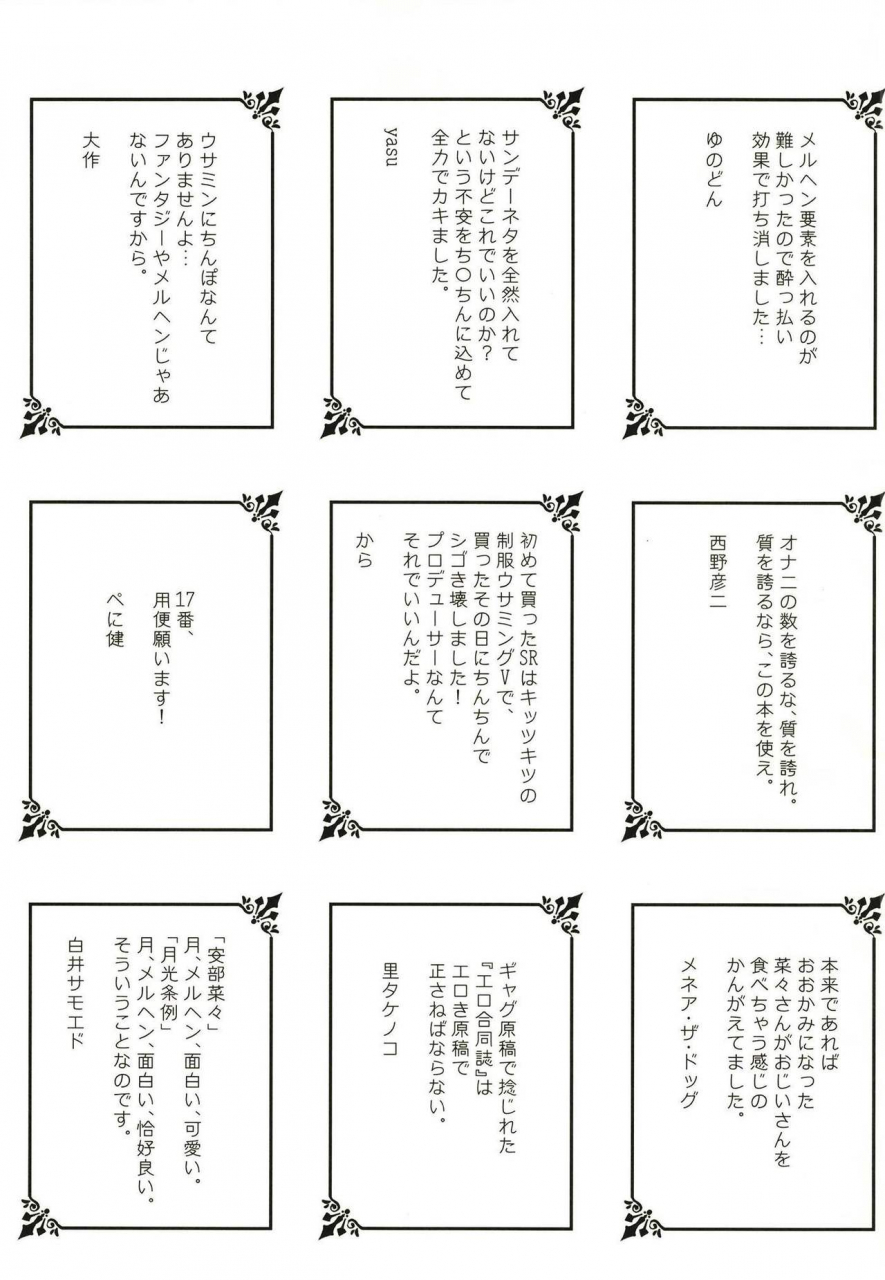 メルヘン要素を入れるのが
難しかったので酔っ払い
効果で打ち消しました…
ゆのどん
サンデーネタを全然入れて
ないけどこれでいいのか?
という不安をち〇ちんに込めて
全力でカキました。
yasu
ウサミンにちんぽなんて
ありませんよ…
ファンタジーやメルヘンじゃあ
ないんですから。
大作
オナニの数を誇るな、質を誇れ。
質を誇るなら、この本を使え。
西野彦二
初めて買ったSRはキッツキツの
制服ウサミングVで、
買ったその日にちんちんで
シゴき壊しました!
プロデューサーなんて
それでいいんだよ。
から
17番、
用便願います!
べに健
本来であれば
おおかみになった
菜々さんがおじいさんを
食べちゃう感じの
かんがえてました。
メネア・ザ・ドッグ
ギャグ原稿で捻じれた
『エロ合同誌』は
エロき原稿で
正さねばならない。
里タケノコ
「安部菜々」
月、メルヘン、面白い、可愛い。
「月光条例」
月、メルヘン、面白い、恰好良い。
そういうことなのです。
白井サモエド